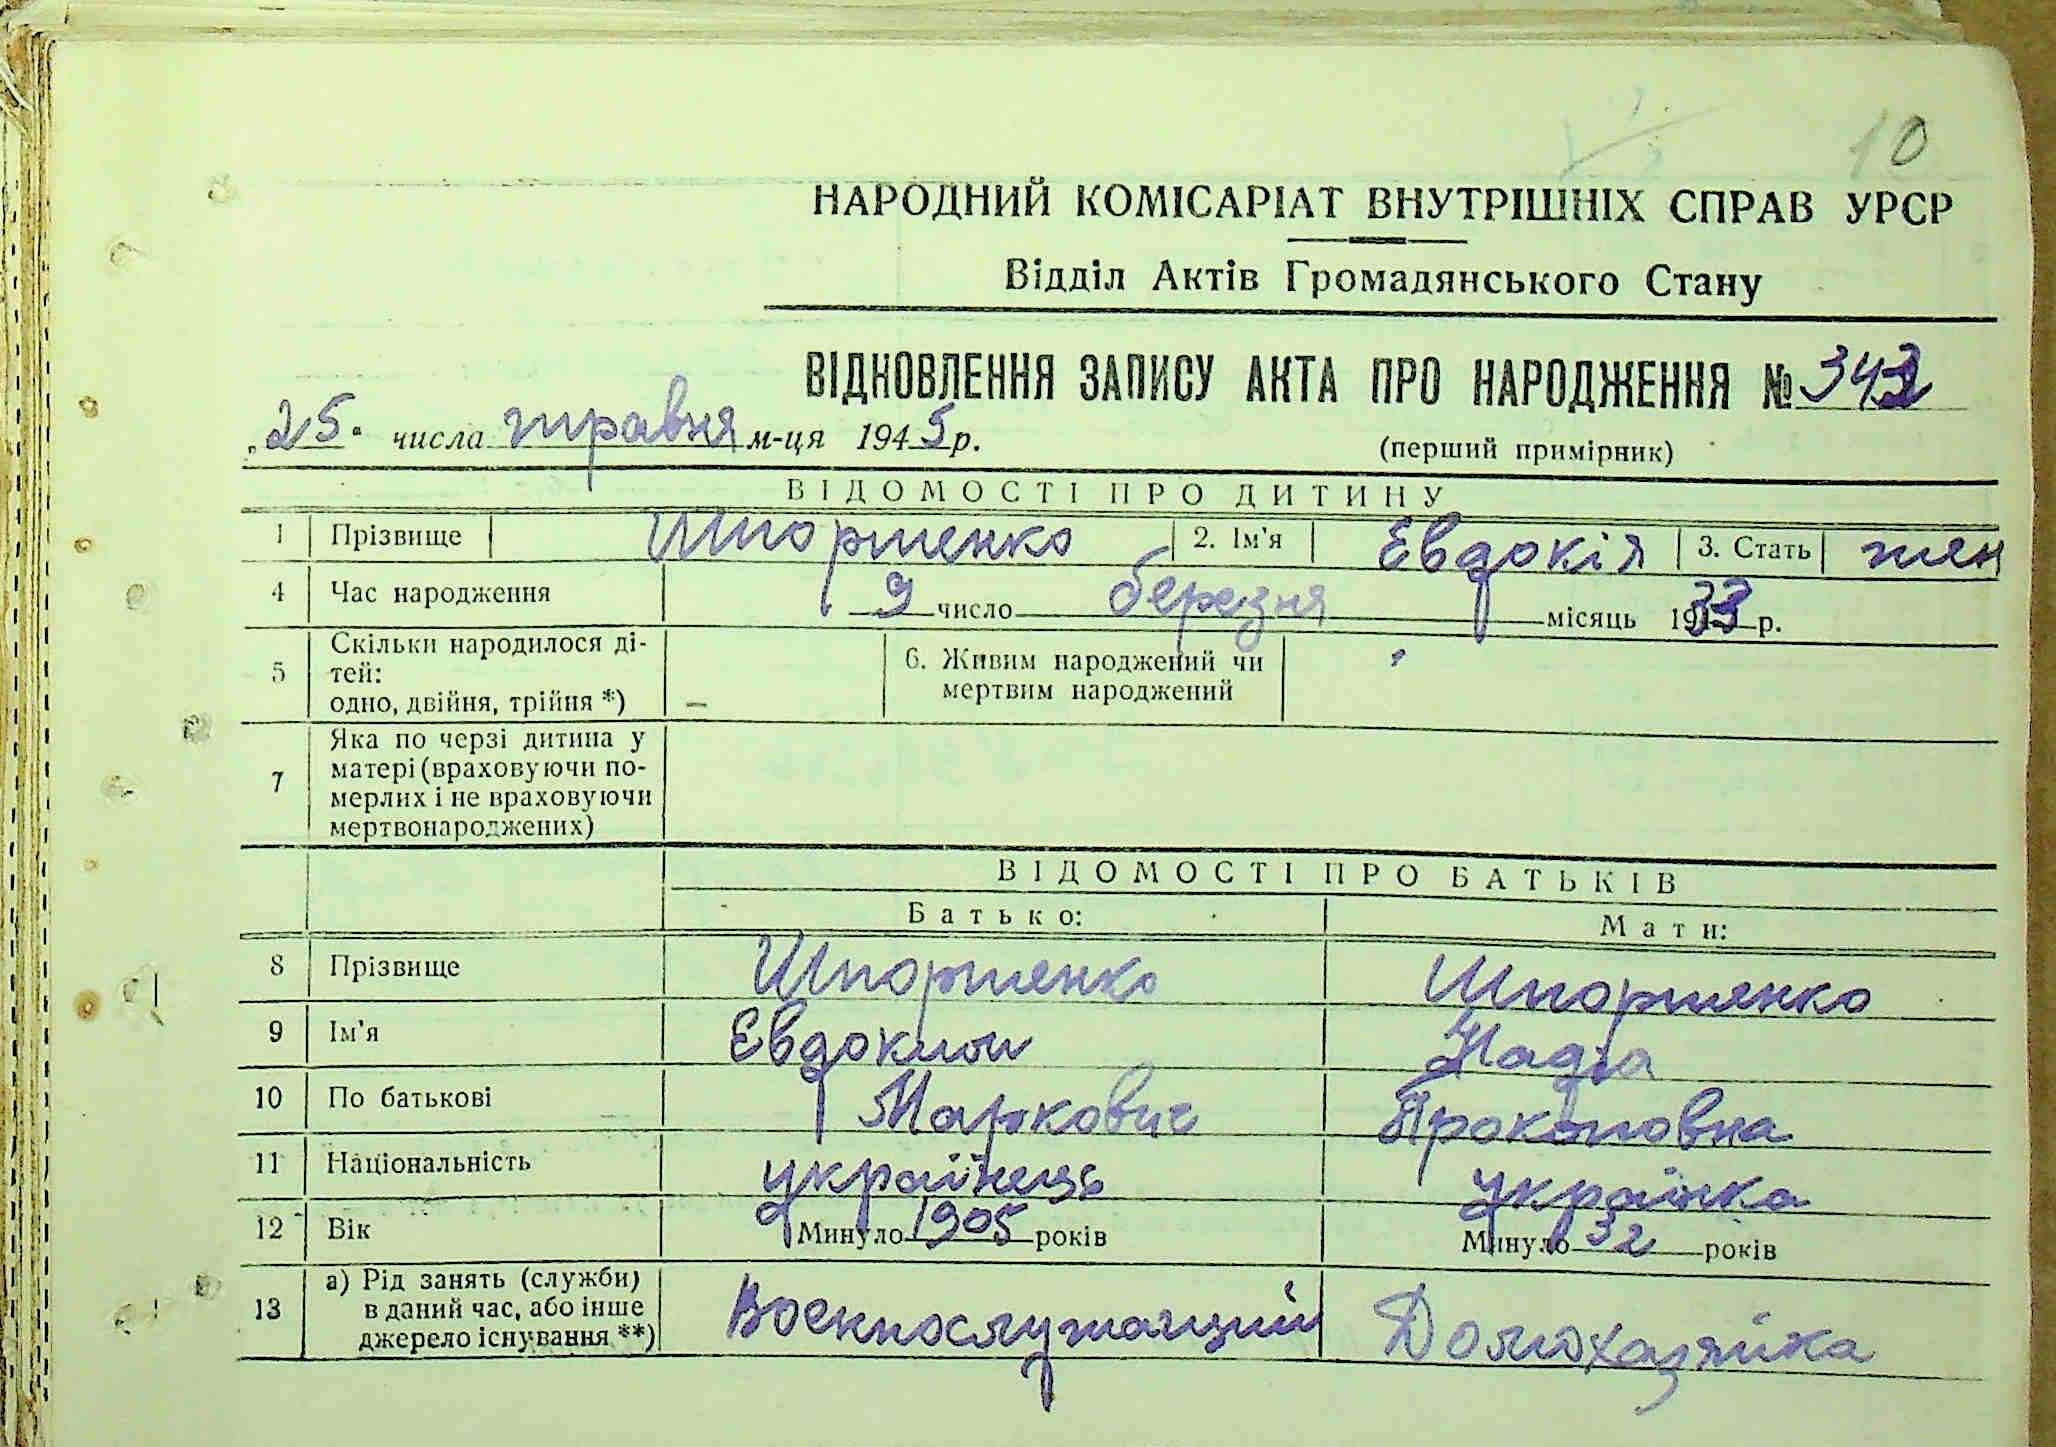 10
НАРОДНИЙ КОМІСАРІАТ ВНУТРІШНІХ СПРАВ УРСР
Відділ Актів Громадянського Стану
ВІДНОВЛЕННЯ ЗАПИСУ АКТА ПРО НАРОДЖЕННЯ № 343
„25" числа травня м-ця 1945 р.
(перший примірник)
ВІДОМОСТІ ПРО ДИТИНУ
1 Прізвище Шпортенко 2. Ім'я Евдокія 3. Стать жен
4 Час народження 9 число березня місяць 1933 р.
5 Скільки народилося ді-
тей:
одно, двійня, трійня *) –
6. Живим народжений чи
мертвим народжений
7 Яка по черзі дитина у
матері (враховуючи по-
мерлих і не враховуючи
мертвонароджених)
ВІДОМОСТІ ПРО БАТЬКІВ
Батько: Мати:
8 Прізвище Шпортенко Шпортенко
9 Ім'я Евдоким Надія
10 По батькові Маркович Прокоповна
11 Національність українець українка
12 Вік Минуло 1905 років Минуло 32 років
13 а) Рід занять (служби)
в даний час, або інше
джерело існування **) Военнослужащий Домохазяйка